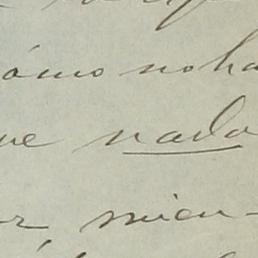 ómo no ha
ue nada
or, mien-